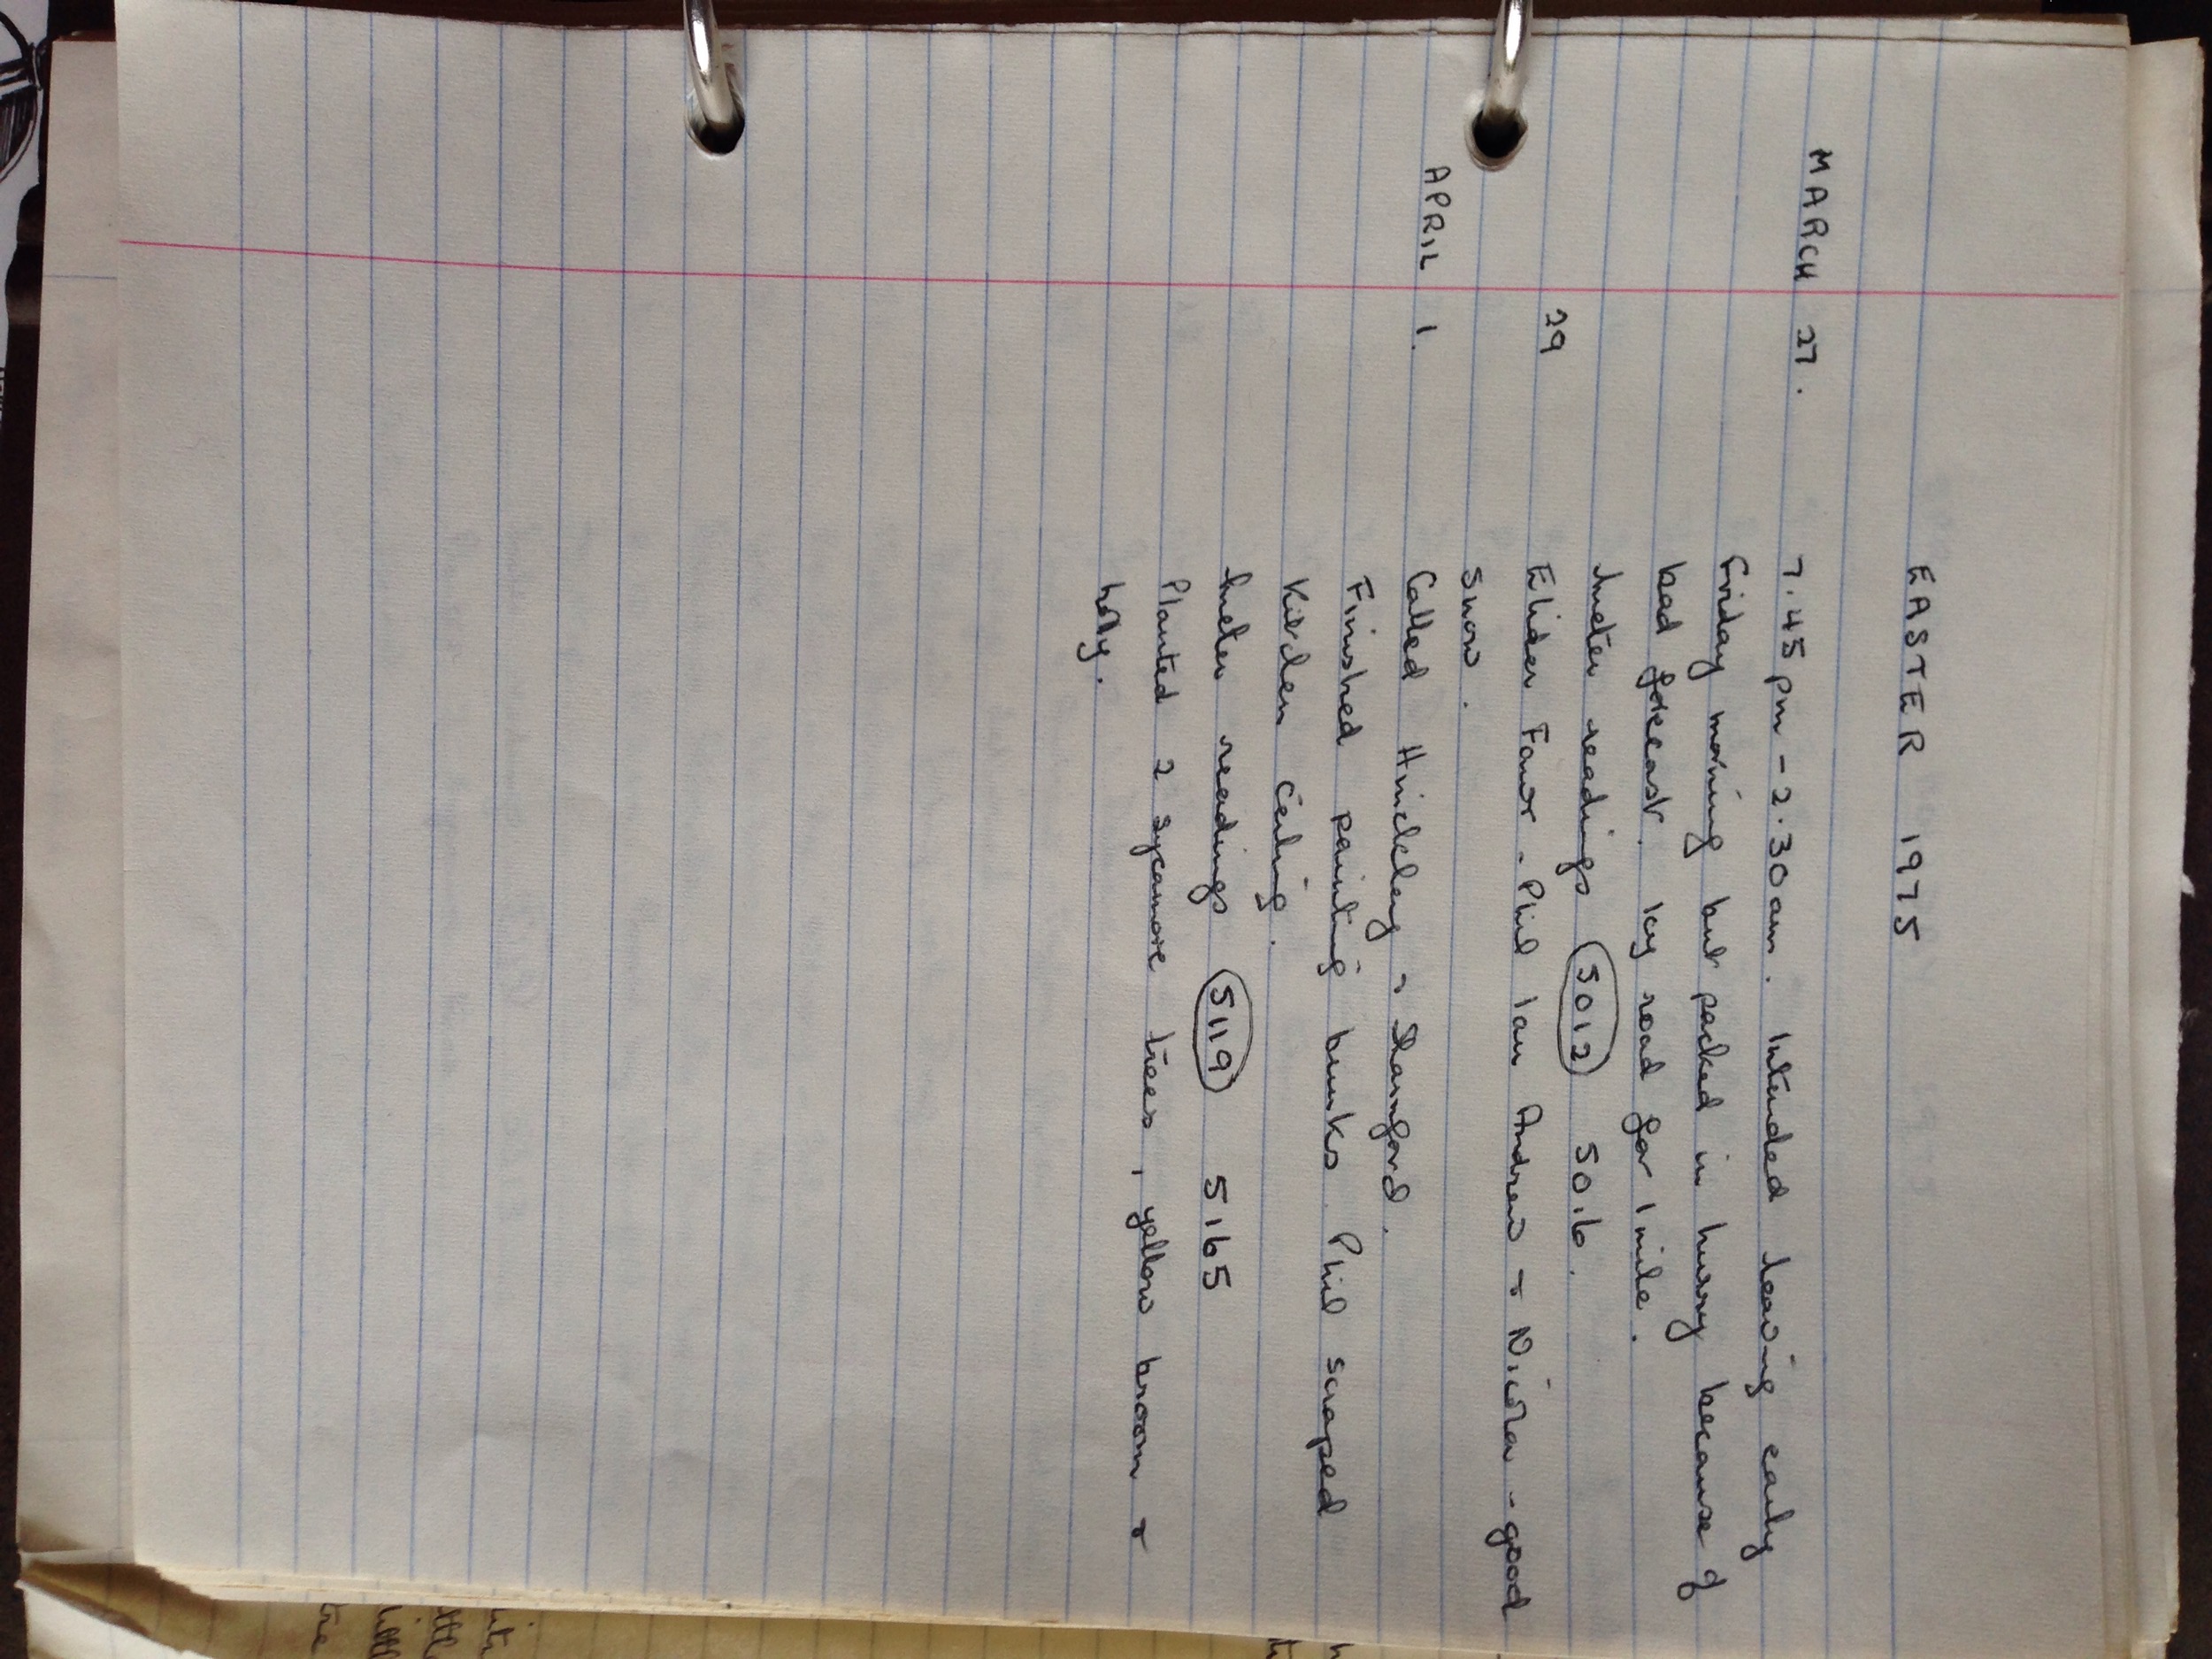 EASTER 1975
MARCH 27. 7.45pm - 2.30am. Intended leaving early
Friday morning but packed in hurry because of
bad forecast. Icy road for 1 mile.
Meter readings 5012 5016.
29 Elider Fawr - Phil Ian Andrew & Nicola - good
snow.
APRIL 1. Called Hinckley & Stamford.
Finished painting bunks. Phil scraped
kitchen ceiling.
Meter readings 5119 5165
Planted 2 sycamore trees, yellow broom &
holly.